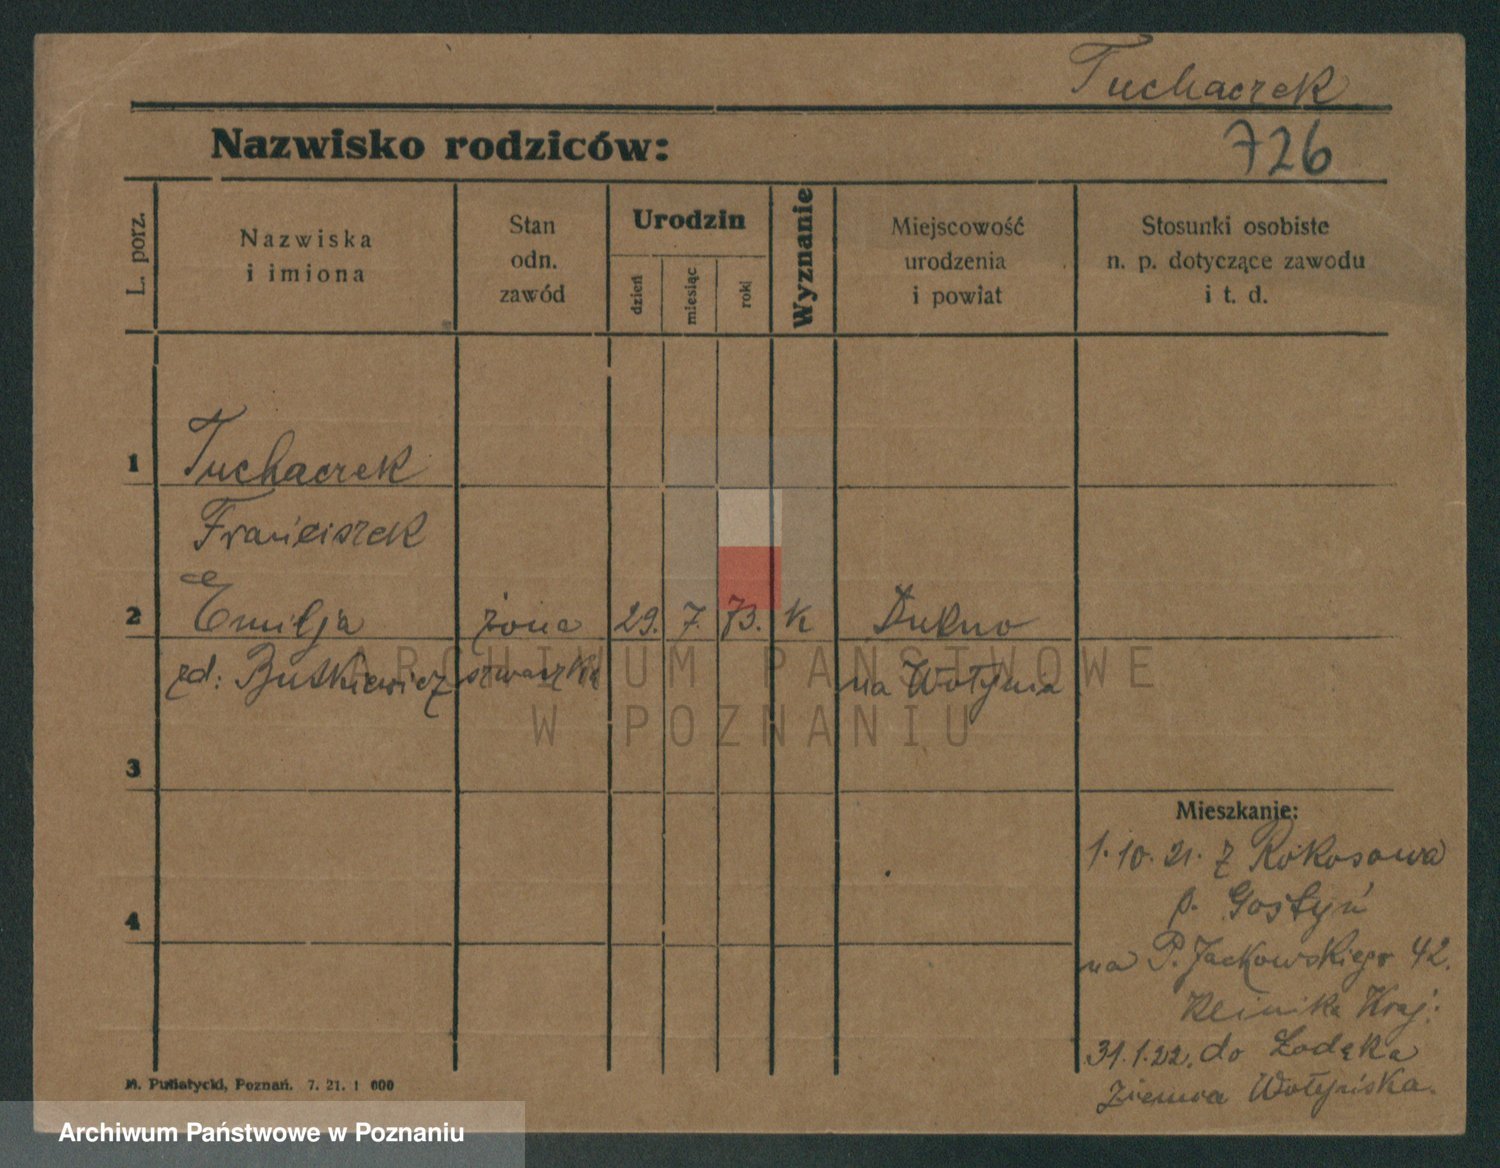 Tuchaczek
Nazwisko rodziców:
726
L. porz.
Nazwiska
i imiona
Stan
odn.
zawód
Urodzin
dzień
miesiąc
rok
Wyznanie
Miejscowość
urodzenia
i powiat
Stosunki osobiste
n. p. dotyczące zawodu
i t. d.
1
Tuchaczek
Franciszek
2
Emilja żona 29. 7. 73. K Dubno
zd: Butkiewicz szwaczka na Wołyniu
3
Mieszkanie:
1.10.21. z Rokosowa
p. Gostyń
4
na P. Jackowskiego 42.
Kraj.
31.1.22. do
Ziemia Wołyńska.
M. Putiatycki, Poznań. 7. 21. 1 000
ARCHIWUM PAŃSTWOWE
W POZNANIU
Archiwum Państwowe w Poznaniu